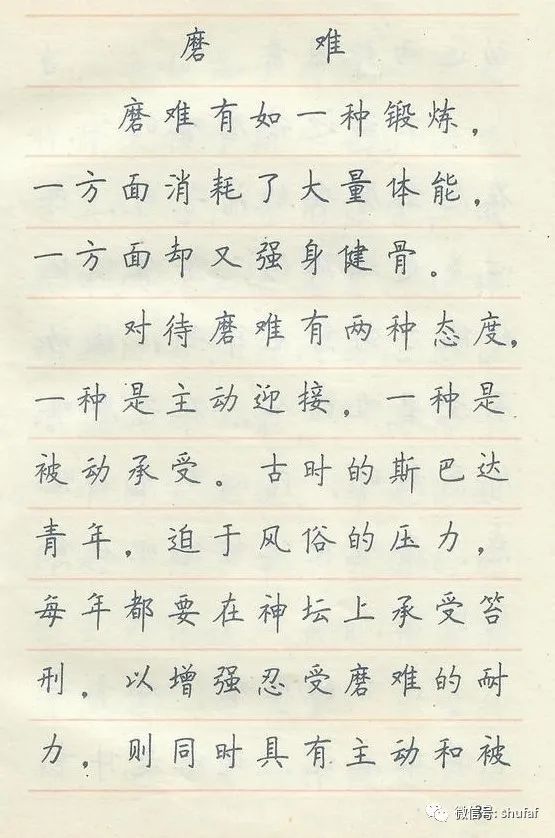 磨 难
磨难有如一种锻炼，
一方面消耗了大量体能，
一方面却又强身健骨。
对待磨难有两种态度，
一种是主动迎接，一种是
被动承受。古时的斯巴达
青年，迫于风俗的压力，
每年都要在神坛上承受笞
刑，以增强忍受磨难的耐
力，则同时具有主动和被
微信号: shufaf